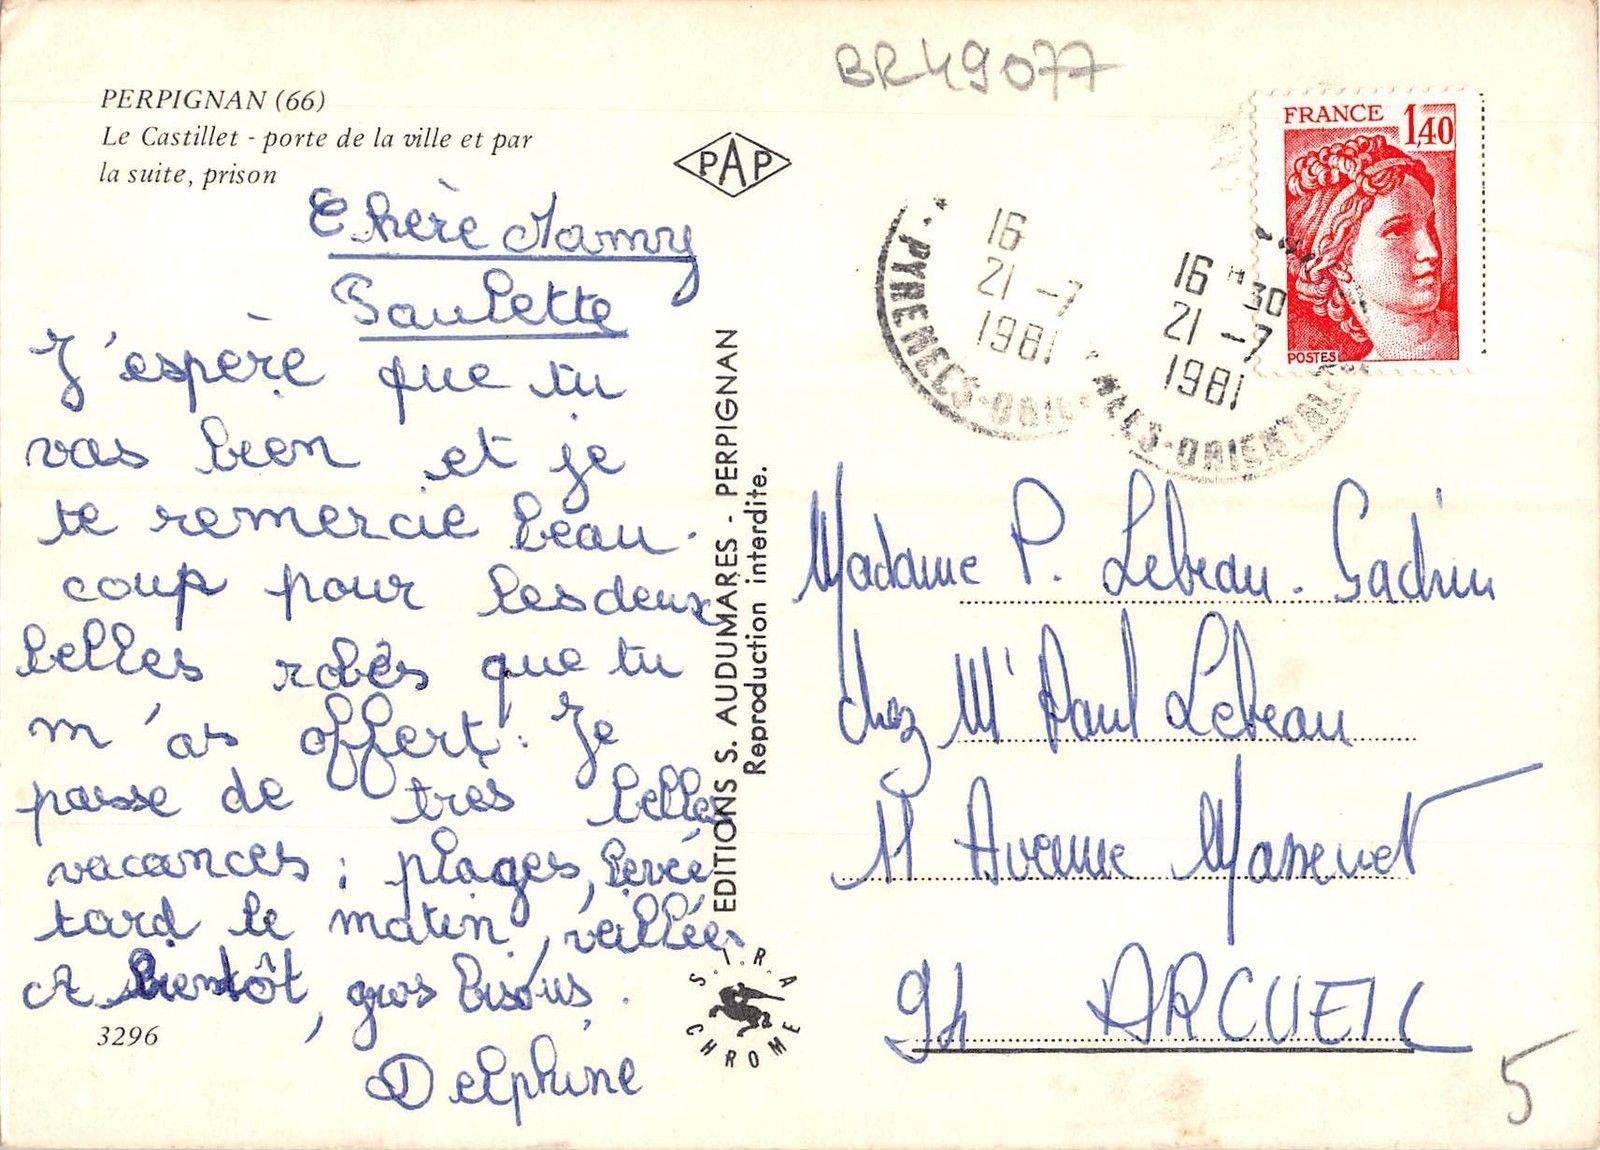 BR49077
PERPIGNAN (66)
Le Castillet - porte de la ville et par
la suite, prison
PAP
FRANCE 1,40
POSTES
16
21 -7
1981
PYRENEES-ORIE
16 H 30
21 -7
1981
NEES-ORIENTALES
Chère Mamy
Paulette
J'espère que tu
vas bien et je
te remercie beau-
coup pour les deux
belles robes que tu
m'as offert. Je
passe de très belles
vacances : plages, levée
tard le matin, vallées
A bientôt, gros bisous.
Delphine
3296
EDITIONS S. AUDUMARES - PERPIGNAN
Reproduction interdite.
S.I.R.A
CHROME
Madame P. Lebeau-Gachin
chez Mr Paul Lebeau
11 Avenue Massenet
94 ARCUEIL
5